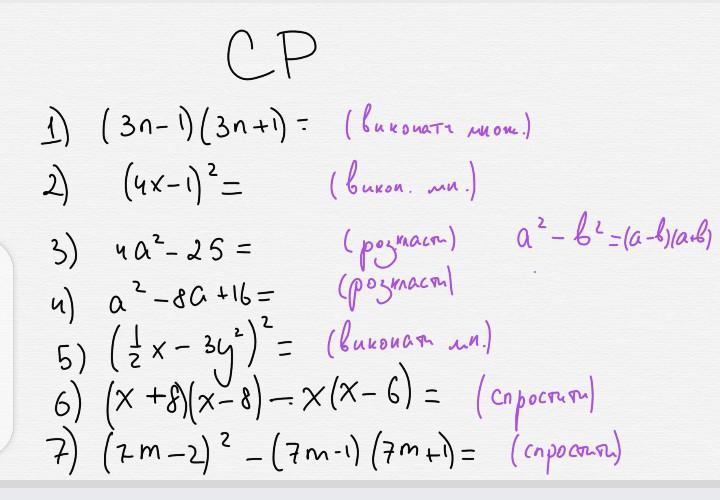 СР
1) (3n-1)(3n+1)= (виконати множ.)
2) (4x-1)²= (викон. мн.)
3) 4a²-25= (розкласти) a²-b²=(a-b)(a+b)
4) a²-8a+16= (розкласти)
5) (½x-3y²)²= (виконат мн.)
6) (x+8)(x-8)-x(x-6)= (спростити)
7) (7m-2)²-(7m-1)(7m+1)= (спростити)